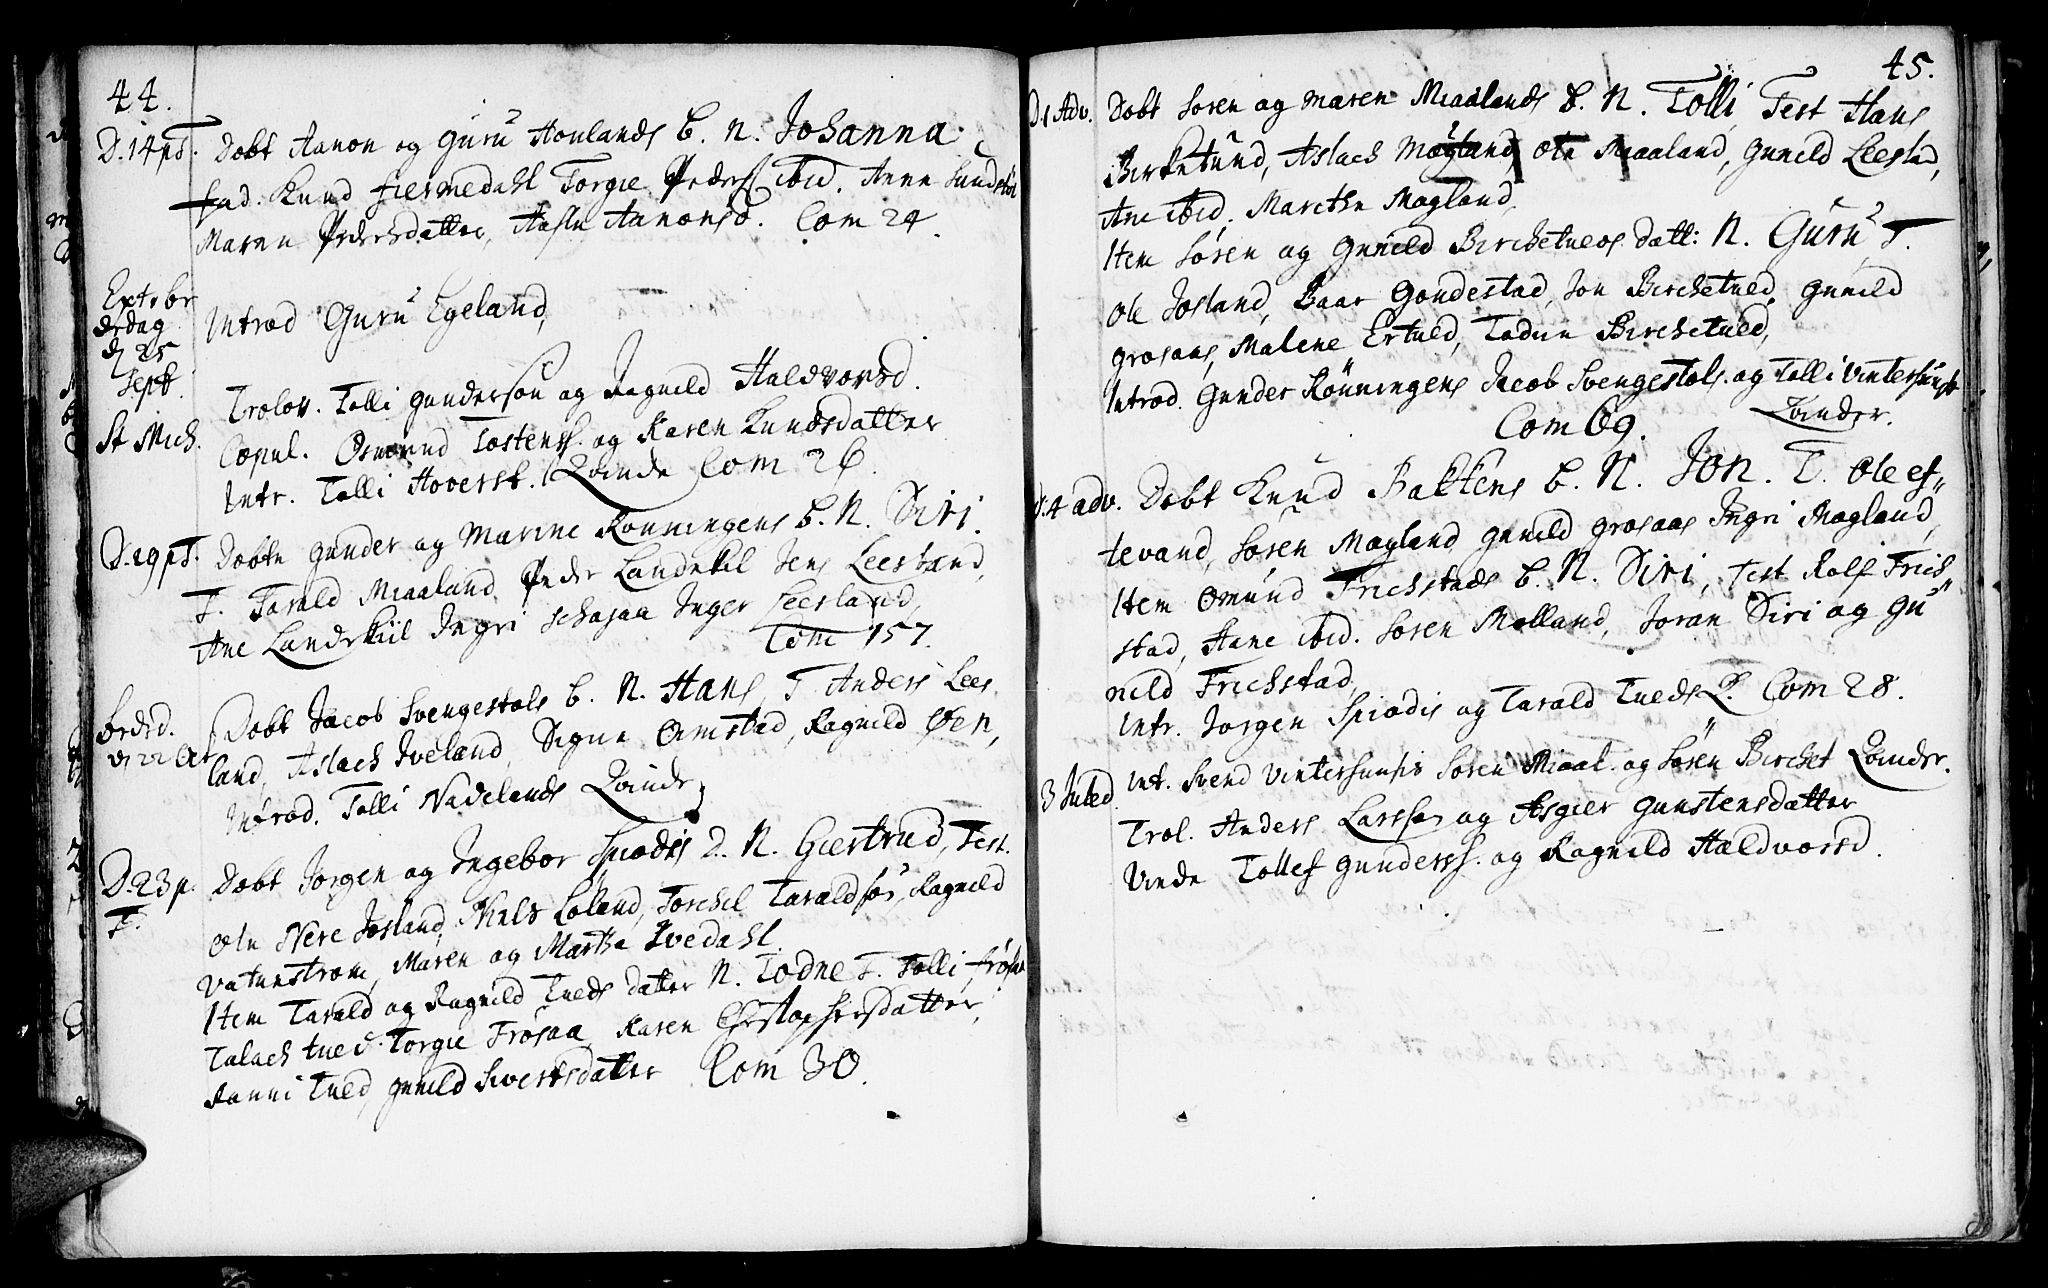 44.
D. 14 p T. Døbt Aanon og Guru Honlands B. N. Johanna
fad. Knud Hiermedahl Torgie Peders ibid. Anne Sundstøl
Maren Pedersdatter, Aasle Aanonsd. Com 24.
Extr br
ørdag
d 25
Sept.
Introd Guru Egeland,
Trolov. Tolli Gunderson og Ragnild Haldvorsd.
St Mich. Copul. Osmund Tostens. og Karen Knudsdatter
Intr. Tolli Hoverst. Qvinde Com 26.
D. 19 p T. Døbte Gunder og Marine Rønningens B. N. Siri.
T. Tarald Miaaland Peder Landekil Jens Leesland,
Ane Landekiil Ingri Schajaa Inger Leesland,
Com 157.
d 22
Døbt Jacob Svengestøls B. N. Hans T. Anders Lees
land, Aslach Iveland, Signe Ormstad, Ragnild Øen,
Introd. Tolli Nadelands Qvinde
D. 23 p.
T.
Døbt Jørgen og Ingebor Spiødes D. N. Giertrud, Test.
Ole Nere Josland, Niels Løland, Torchel Taraldsøn, Ragnild
Vatnestrøm, Maren og Martha Ivedahl.
Item Tarald og Ragnild Tveds datter N. Todne T. Tolli Frøsaa
Talach Tued. Torgie Frøsaa Karen Christophersdatter,
Ranni Tued, Gunild Sivertsdatter Com 30.
45.
D. 1 Adv. Døbt Søren og Maren Miaalands B. N. Tolli Test Hans
Birketuud, Aslach Møgland, Ole Miaaland, Gunild Leesland,
Ane ibid. Marethe Møgland,
Item Søren og Gunild Birchetueds datt: N. Guru T.
Ole Josland, Baar Gondestad, Jon Birchetued, Gunild
Grosaas, Malene Ertued, Todne Birchetued,
Introd. Gunder Rønningens Jacob Svengestøls og Tolli Vintersunst
Com 69. Qvinder.
D. 4 adv. Døbt Knud Bakkens B. N. Jon. T. Ole ef,,
tevand, Søren Møgland Gunild Grosaas Ingri Møgland,
Item Omund Frichstads B. N. Siri, Test Rolf Frich
stad, Hane ibid. Søren Mølland, Joran Siri og Gu,,
nild Frichstad,
Intr. Jorgen Spiødis og Tarald Tueds Q. Com 28.
3 Juled. Int. Svend Vintersunsis Søren Miaal. og Søren Birchet Qvinder.
Trol. Anders Larssøn og Asgier Gunstensdatter
Viede Tollef Gunderss. og Ragnild Haldvorsd.